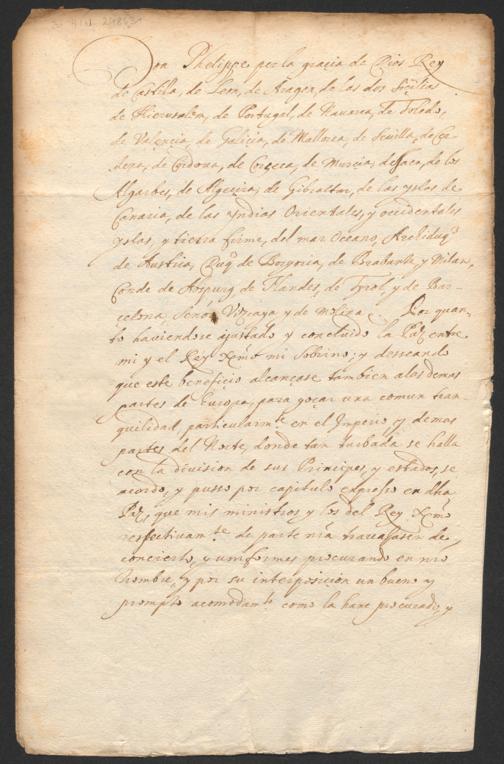 Don Phelippe por la gracia de Dios Rey
de Castilla, de Leon, de Aragon, de las dos Sicilias
de Hierusalen, de Portugal, de Navarra, de Toledo,
de Valençia, de Galiçia, de Mallorca, de Sevilla, de Cer
deña, de Cordova, de Corcega, de Murcia, de Jaen, de los
Algarbes, de Algecira, de Gibraltar, de las yslas de
Canaria, de las yndias Orientales, y occidentales
yslas, y tierra firme, del mar Oceano, Archiduq.
de Austria, Duq. de Borgoña, de Brabante, y Milan,
Conde de Abspurg de Flandes, de Tyrol, y de Bar-
celona, Señor de Vizcaya, y de Molina &. Por quan-
to haviendose ajustado y concluido la Paz entre
mi y el Rey Xrmo mi Sobrino; y desseando
que este beneficio alcançase tambien a los demas
partes de Europa, para goçar una comun tran-
quilidad, particularm.te en el Imperio y demas
partes del Norte, donde tan turbada se halla
con la division de sus Principes, y estados, se
acordo, y pusso por capitulo expreso en dha
Paz, que mis ministros y los del Rey Xrmo
respectivam.te de parte nra travajasen de
concierto, y uniformes procurando en nro
nombre, y por su interposicion un bueno y
prompto acomodam.to como la hare procurado, y